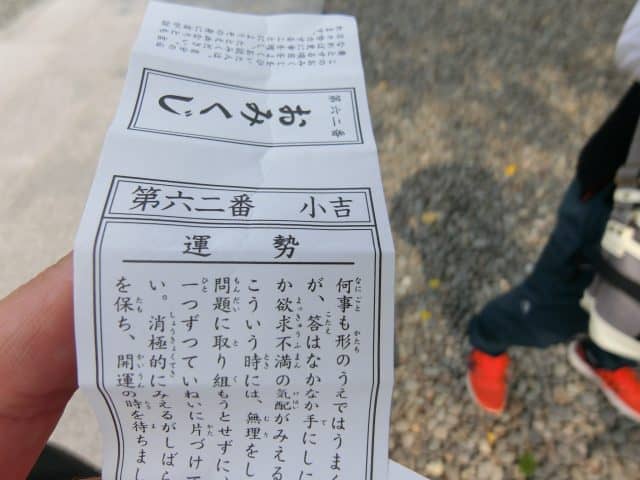 第六二番
おみくじ
第六二番 小吉
運勢
何事も形のうえではうまく
が、答はなかなか手にしに
か欲求不満の気配がみえる
こういう時には、無理をし
問題に取り組もうとせずに、
一つずつていねいに片づけて
い。消極的にみえるがしばら
を保ち、開運の時を待ちまし